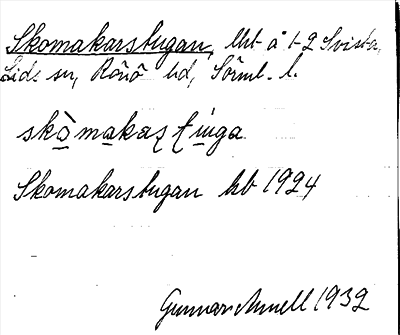 Skomakarstugan, lht å 1-2 Svista,
Lids sn, Rönö hd, Sörml. l.
skòmakaʂʈuga
Skomakarstugan hb 1924
Gunnar Amell 1932